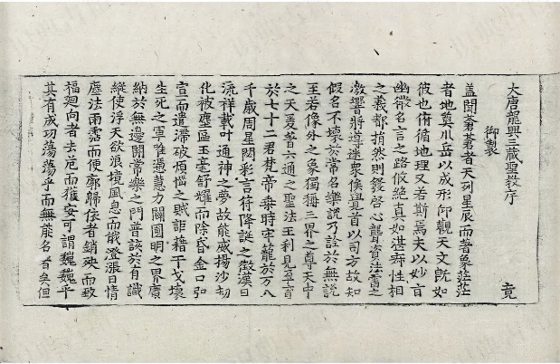 大唐龍興三藏聖教序 竟
御製
盖聞蒼蒼者天列星辰而著象茫茫
者地奠川岳以成形仰觀天文旣如
彼也俯循地理又若斯焉夫以妙旨
幽微名言之路攸絶真如湛寂性相
之義都捐然則發啓心聾資法雷之
激響將導迷衆俟覺首以司方故知
假名不壞於常名樂說乃詮於無說
王若像外之象獨稱三界之尊天中
之天爰著六通之聖法王利見孕育
於七十二君梵帝乗時牢籠於万八
千歲周星閟彩言符降誕之徵漢日
流祥載叶通神之夢故能威揚沙劫
化被塵區玉毫舒耀而除昏金口弘
宣而遣滯破煩惱之賊詎籍干戈壞
生死之軍唯憑慧力闢圓明之界廣
納於無邊開常樂之門普該於有識
縱使浮天欲浪境風息而俄澄漲日情
塵法雨霑而便廓歸依者銷殃而致
福廻向者去危而獲安可謂巍巍乎
其有成功蕩蕩乎而無能名者矣但